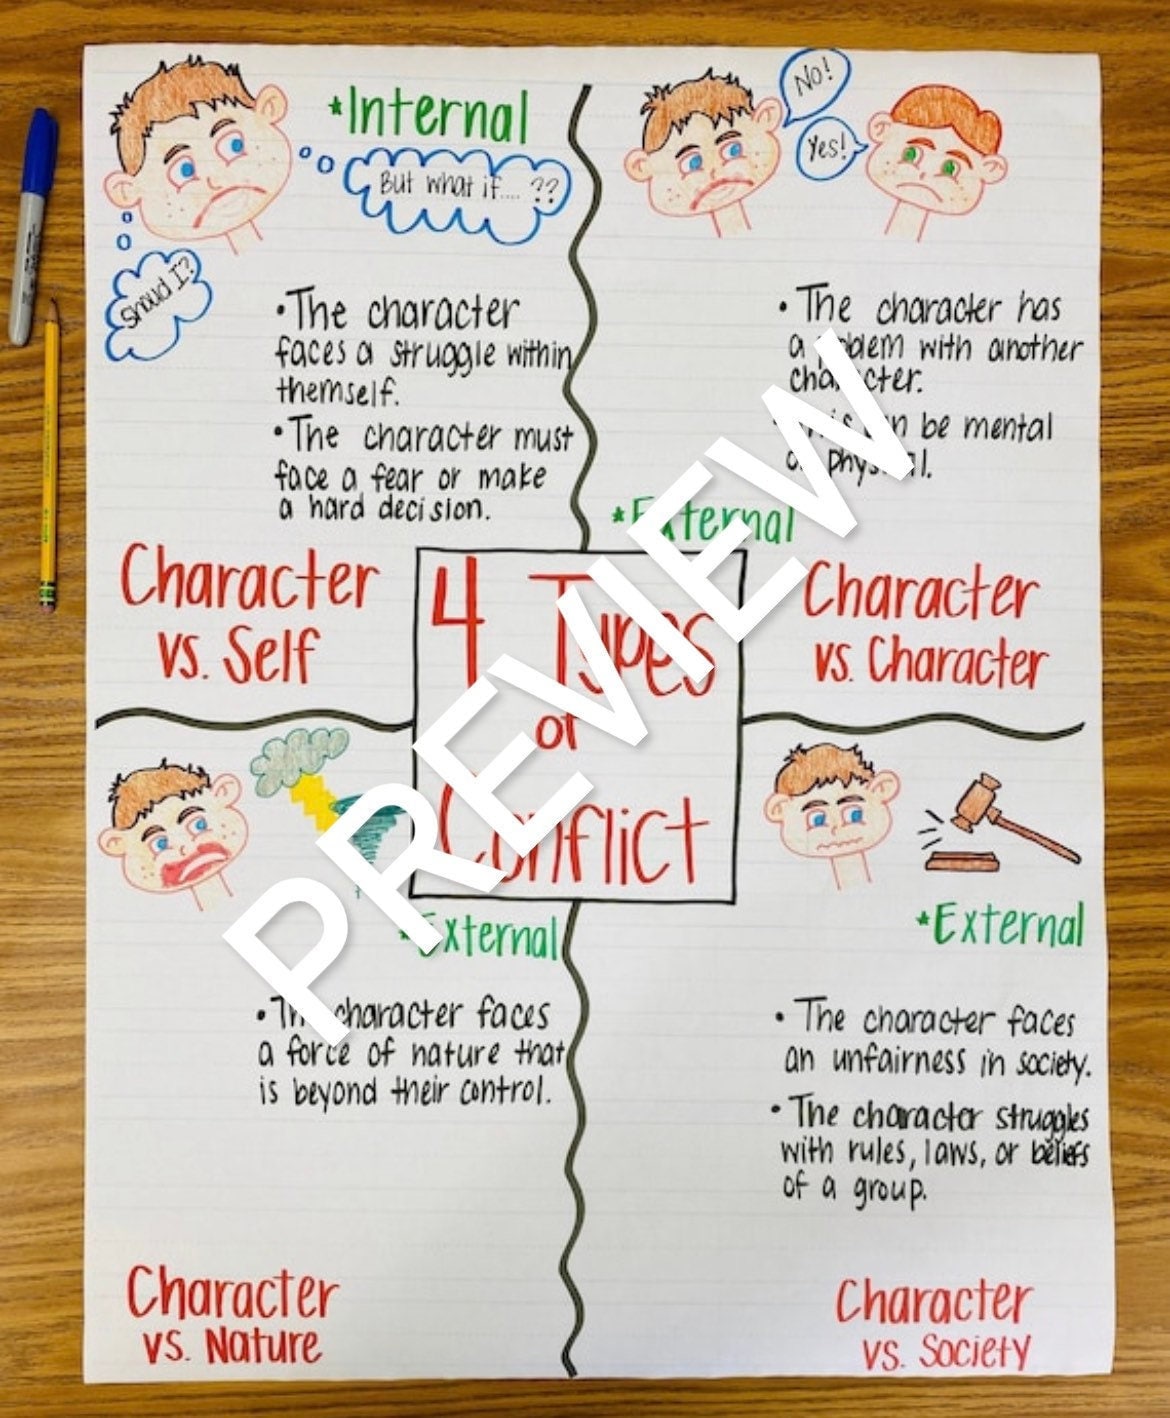 *Internal
But what if.... ??
Shoud I?
• The character
faces a struggle within
themself.
• The character must
face a fear or make
a hard decision.
Character
vs. Self
No!
Yes!
• The character has
a problem with another
character.
• This can be mental
or physical.
*External
Character
vs. Character
4 Types
of
Conflict
*External
• The character faces
a force of nature that
is beyond their control.
Character
vs. Nature
*External
• The character faces
an unfairness in society.
• The character struggles
with rules, laws, or beliefs
of a group.
Character
vs. Society
PREVIEW